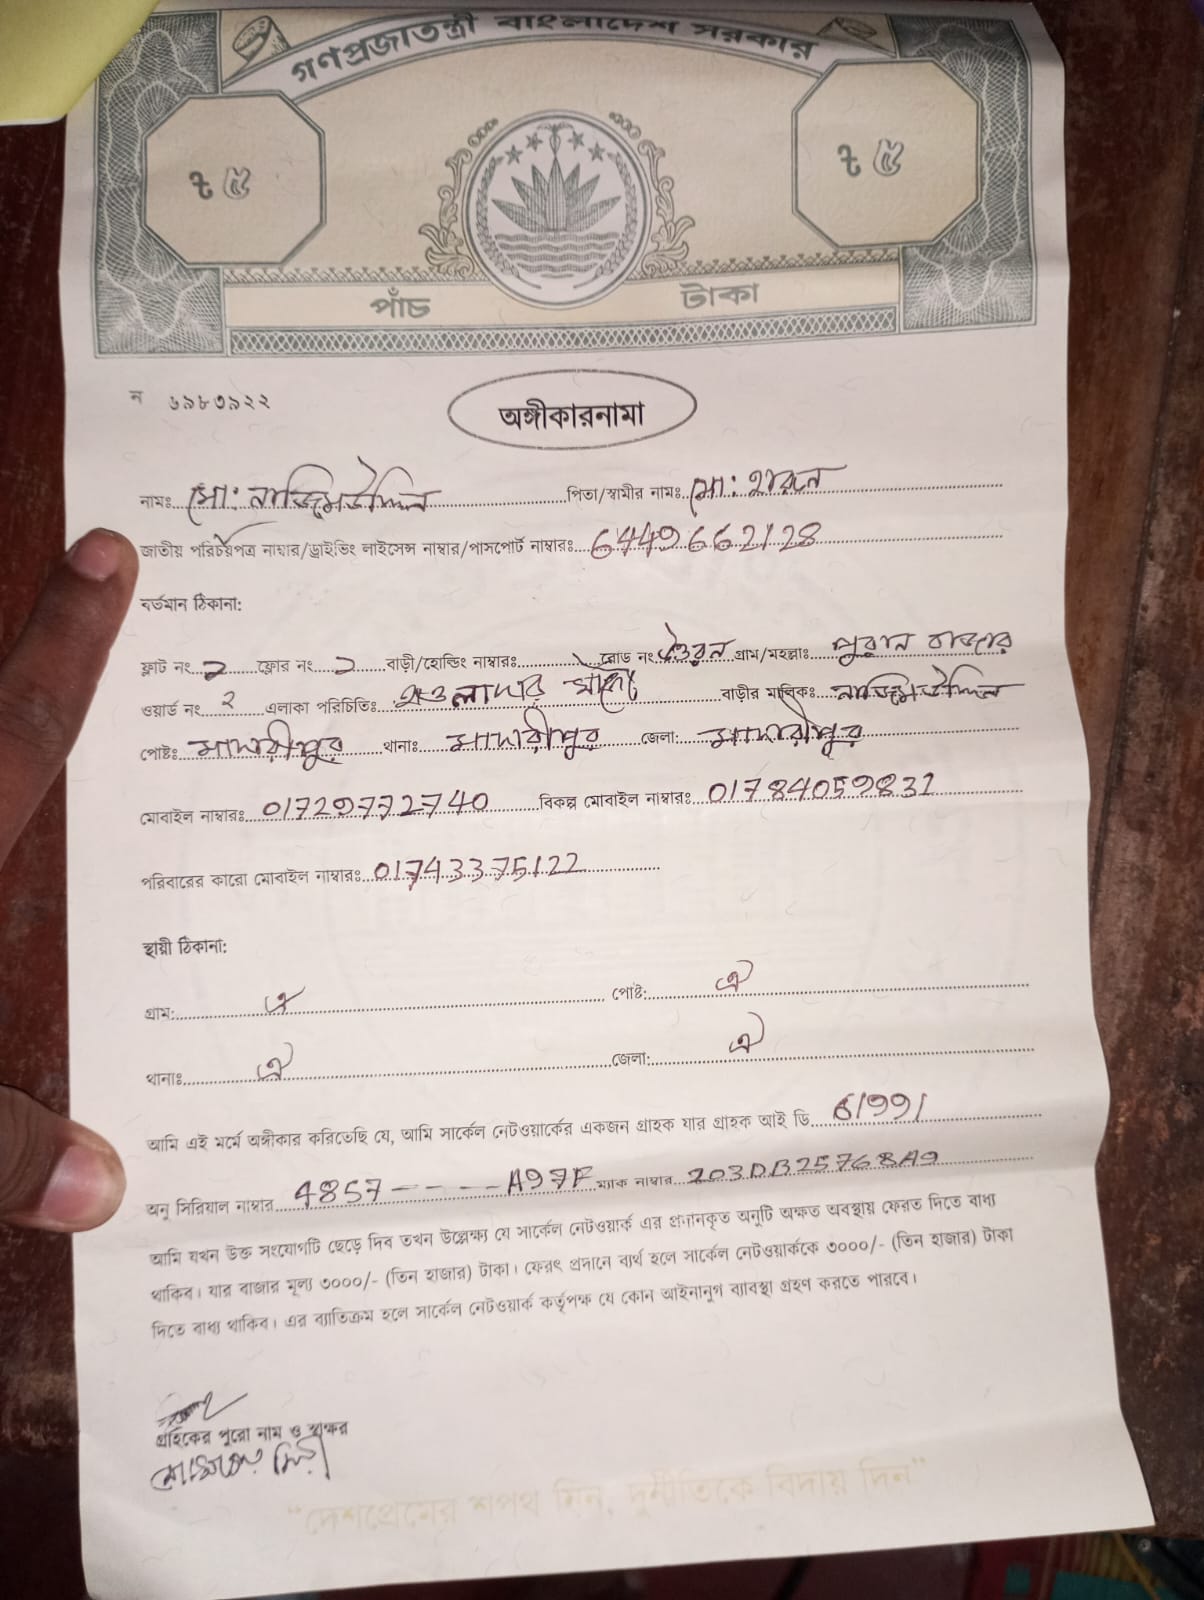 গণপ্রজাতন্ত্রী বাংলাদেশ সরকার
৳ ৫ ৳ ৫
পাঁচ টাকা
ন ৬৯৮৩৯২২
অঙ্গীকারনামা
নামঃ মো: নাজিমউদ্দিন পিতা/স্বামীর নামঃ মো: হারুন
জাতীয় পরিচয়পত্র নাম্বার/ড্রাইভিং লাইসেন্স নাম্বার/পাসপোর্ট নাম্বারঃ 6449662128
বর্তমান ঠিকানা:
ফ্লাট নং ২ ফ্লোর নং বাড়ী/হোল্ডিং নাম্বারঃ রোড নং গ্রাম/মহল্লাঃ পুরান বাজার
ওয়ার্ড নং ২ এলাকা পরিচিতিঃ হাওলাদার বাড়ীর মালিকঃ নাজিমউদ্দিন
পোষ্টঃ মাদারীপুর থানাঃ মাদারীপুর জেলা: মাদারীপুর
মোবাইল নাম্বারঃ 01729772740 বিকল্প মোবাইল নাম্বারঃ 01784059832
পরিবারের কারো মোবাইল নাম্বারঃ 01743375122
স্থায়ী ঠিকানা:
গ্রাম: ঐ পোষ্ট: ঐ
থানাঃ ঐ জেলা: ঐ
আমি এই মর্মে অঙ্গীকার করিতেছি যে, আমি সার্কেল নেটওয়ার্কের একজন গ্রাহক যার গ্রাহক আই ডি 61991
অনু সিরিয়াল নাম্বার 4857----A97F ম্যাক নাম্বার 203DB25768A9
আমি যখন উক্ত সংযোগটি ছেড়ে দিব তখন উল্লেক্ষ্য যে সার্কেল নেটওয়ার্ক এর প্রদানকৃত অনুটি অক্ষত অবস্থায় ফেরত দিতে বাধ্য
থাকিব। যার বাজার মূল্য ৩০০০/- (তিন হাজার) টাকা। ফেরৎ প্রদানে ব্যর্থ হলে সার্কেল নেটওয়ার্ককে ৩০০০/- (তিন হাজার) টাকা
দিতে বাধ্য থাকিব। এর ব্যাতিক্রম হলে সার্কেল নেটওয়ার্ক কর্তৃপক্ষ যে কোন আইনানুগ ব্যাবস্থা গ্রহণ করতে পারবে।
গ্রহিকের পুরো নাম ও স্বাক্ষর
“দেশপ্রেমের শপথ নিন, দুর্নীতিকে বিদায় দিন”